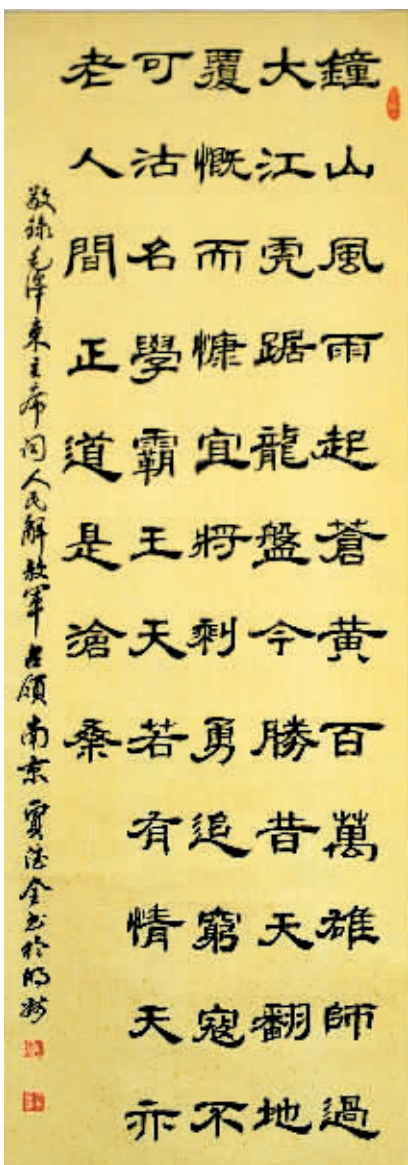 鐘山風雨起蒼黃百萬雄師過
大江虎踞龍盤今勝昔天翻地
覆慨而慷宜將剩勇追窮寇不
可沽名學霸王天若有情天亦
老人間正道是滄桑
敬錄毛澤東主席詞人民解放軍占領南京賈全书於